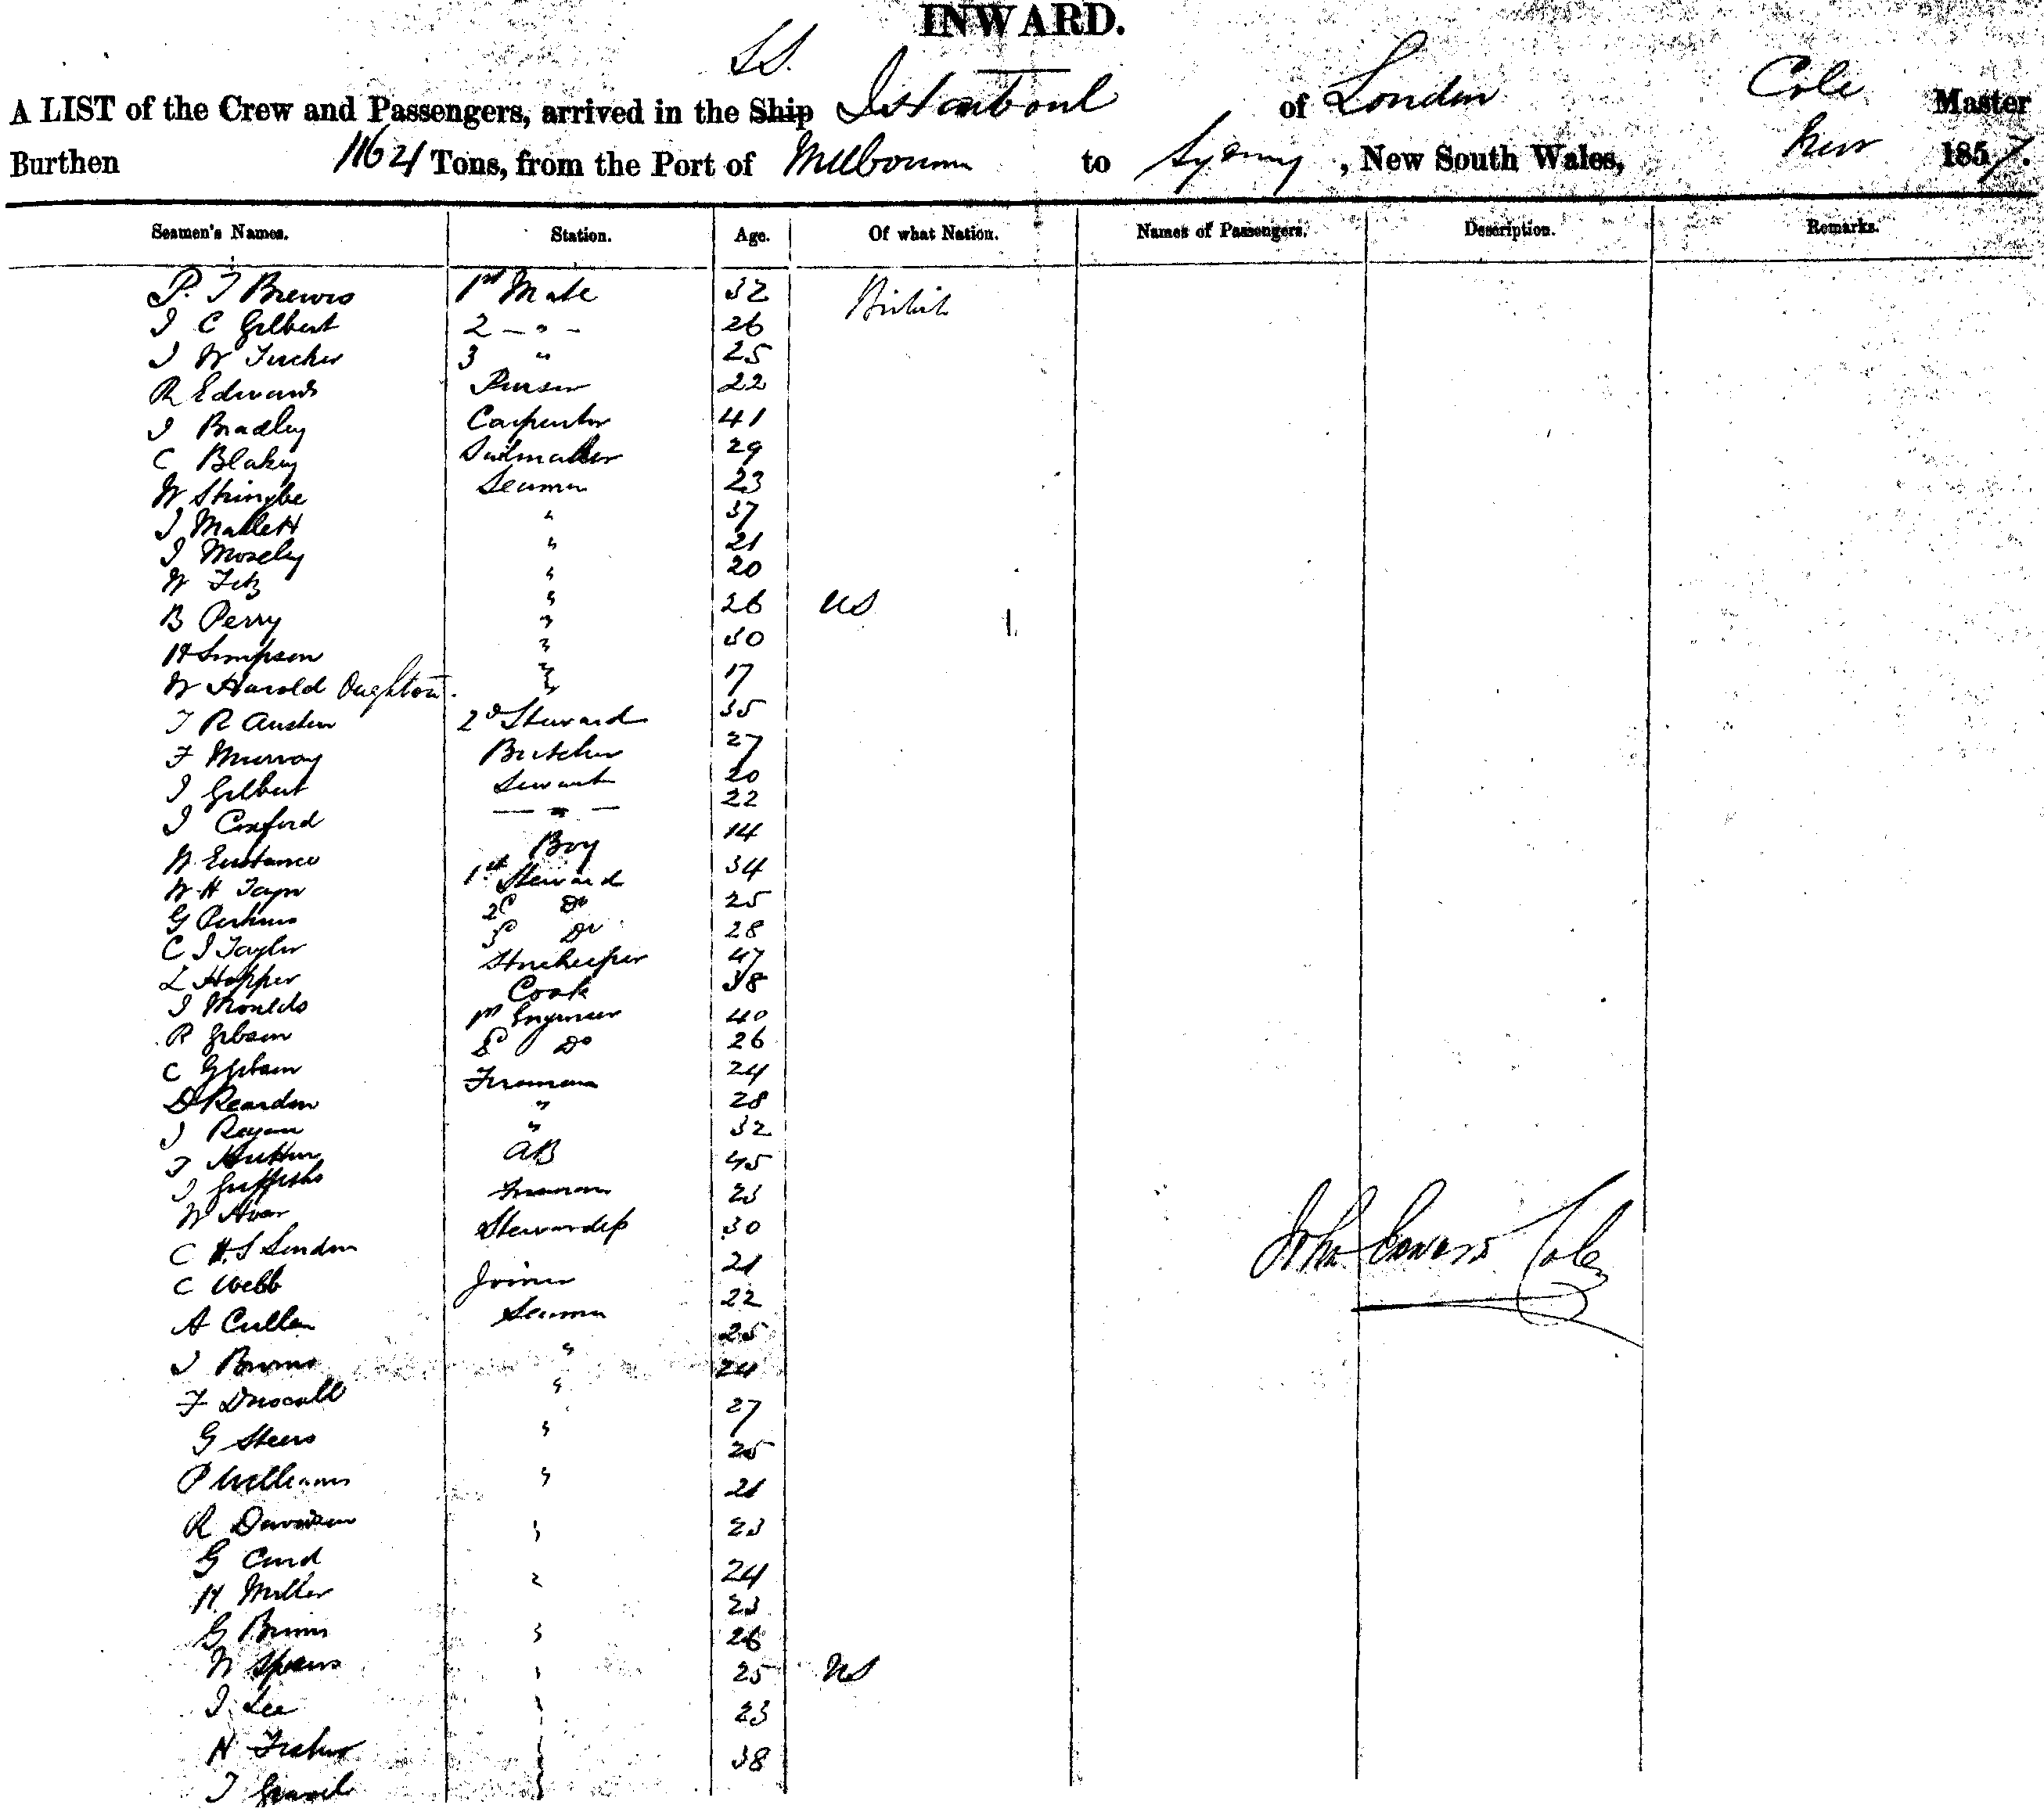 INWARD.
SS.
A LIST of the Crew and Passengers, arrived in the Ship Istamboul of London Cole Master
Burthen 1164 Tons, from the Port of Melbourne to Sydney, New South Wales, 1857.
Seamen's Names. Station. Age. Of what Nation. Names of Passengers. Description. Remarks.
P. T Brewis 1st Mate 32 British
J C Gilbert 2 — " — 26
J W Tucker 3 " 25
R Edwards Purser 22
J Bradley Carpenter 41
C Blakey Sailmaker 29
W Seaman 23
J Mallett " 37
J Mosely " 21
W " 20
B Perry " 26 US
H Simpson " 30
W Harold Oughton. " 17
T R Austin 2d Steward 35
F Murray Butcher 27
J Gilbert Servant 20
J Coxford — " — 22
W Eustance Boy 14
W H 1st Steward 34
G Perkins 2d Do 25
C J Taylor Do 28
L Hopper Storekeeper 47
J Moulds Cook 38
R Gibson 1st Engineer 40
C G Gibson 2d Do 26
D Reardon Fireman 24
J Ryan " 28
J Hutton " 32
J Griffiths AB 45
W Hoar Fireman 23
C H. S Lindon Stewardess 30
C Webb Joiner 21
A Cullen Seaman 22
J Burns " 25
F Driscoll " 24
G Steers " 27
P Williams " 25
R Davidson " 21
G Curd " 23
H. Miller " 24
G Binns " 23
W Spears " 26
J. Lee " 25 US
H Fisher " 23
T " 38
John Edward Cole